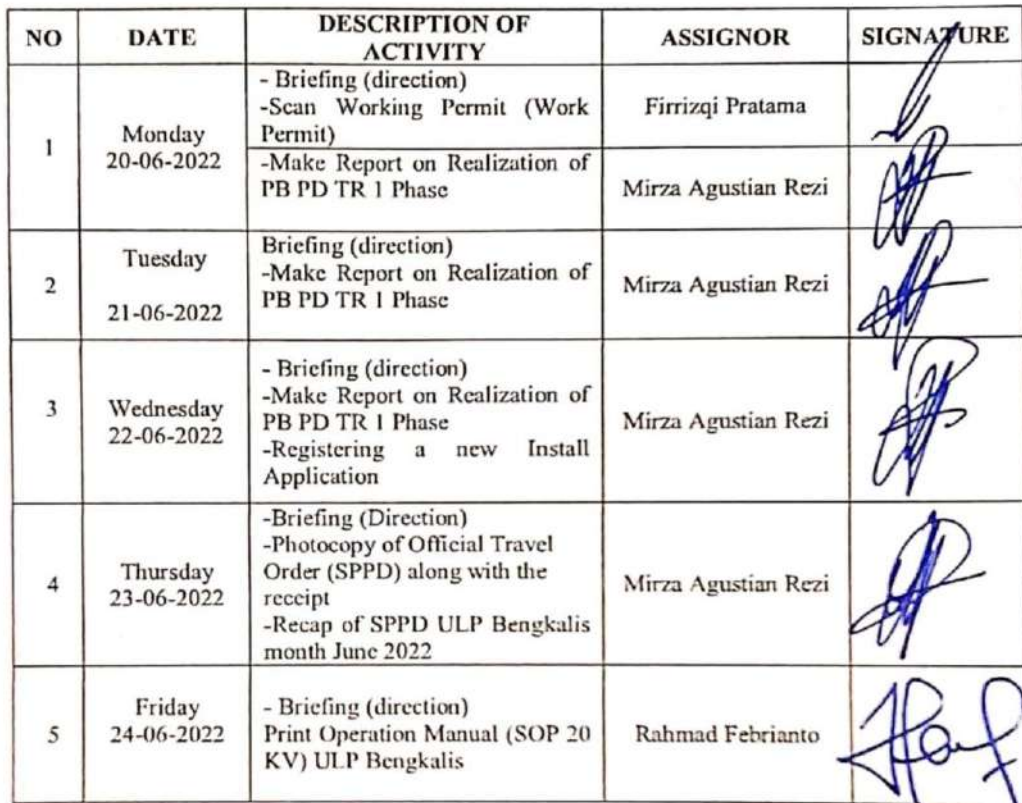 NO DATE DESCRIPTION OF ACTIVITY ASSIGNOR SIGNATURE
1
Monday
20-06-2022
- Briefing (direction)
-Scan Working Permit (Work
Permit)
Firrizqi Pratama
-Make Report on Realization of
PB PD TR 1 Phase
Mirza Agustian Rezi
2
Tuesday
21-06-2022
Briefing (direction)
-Make Report on Realization of
PB PD TR 1 Phase
Mirza Agustian Rezi
3
Wednesday
22-06-2022
- Briefing (direction)
-Make Report on Realization of
PB PD TR 1 Phase
-Registering a new Install
Application
Mirza Agustian Rezi
4
Thursday
23-06-2022
-Briefing (Direction)
-Photocopy of Official Travel
Order (SPPD) along with the
receipt
-Recap of SPPD ULP Bengkalis
month June 2022
Mirza Agustian Rezi
5
Friday
24-06-2022
- Briefing (direction)
Print Operation Manual (SOP 20
KV) ULP Bengkalis
Rahmad Febrianto